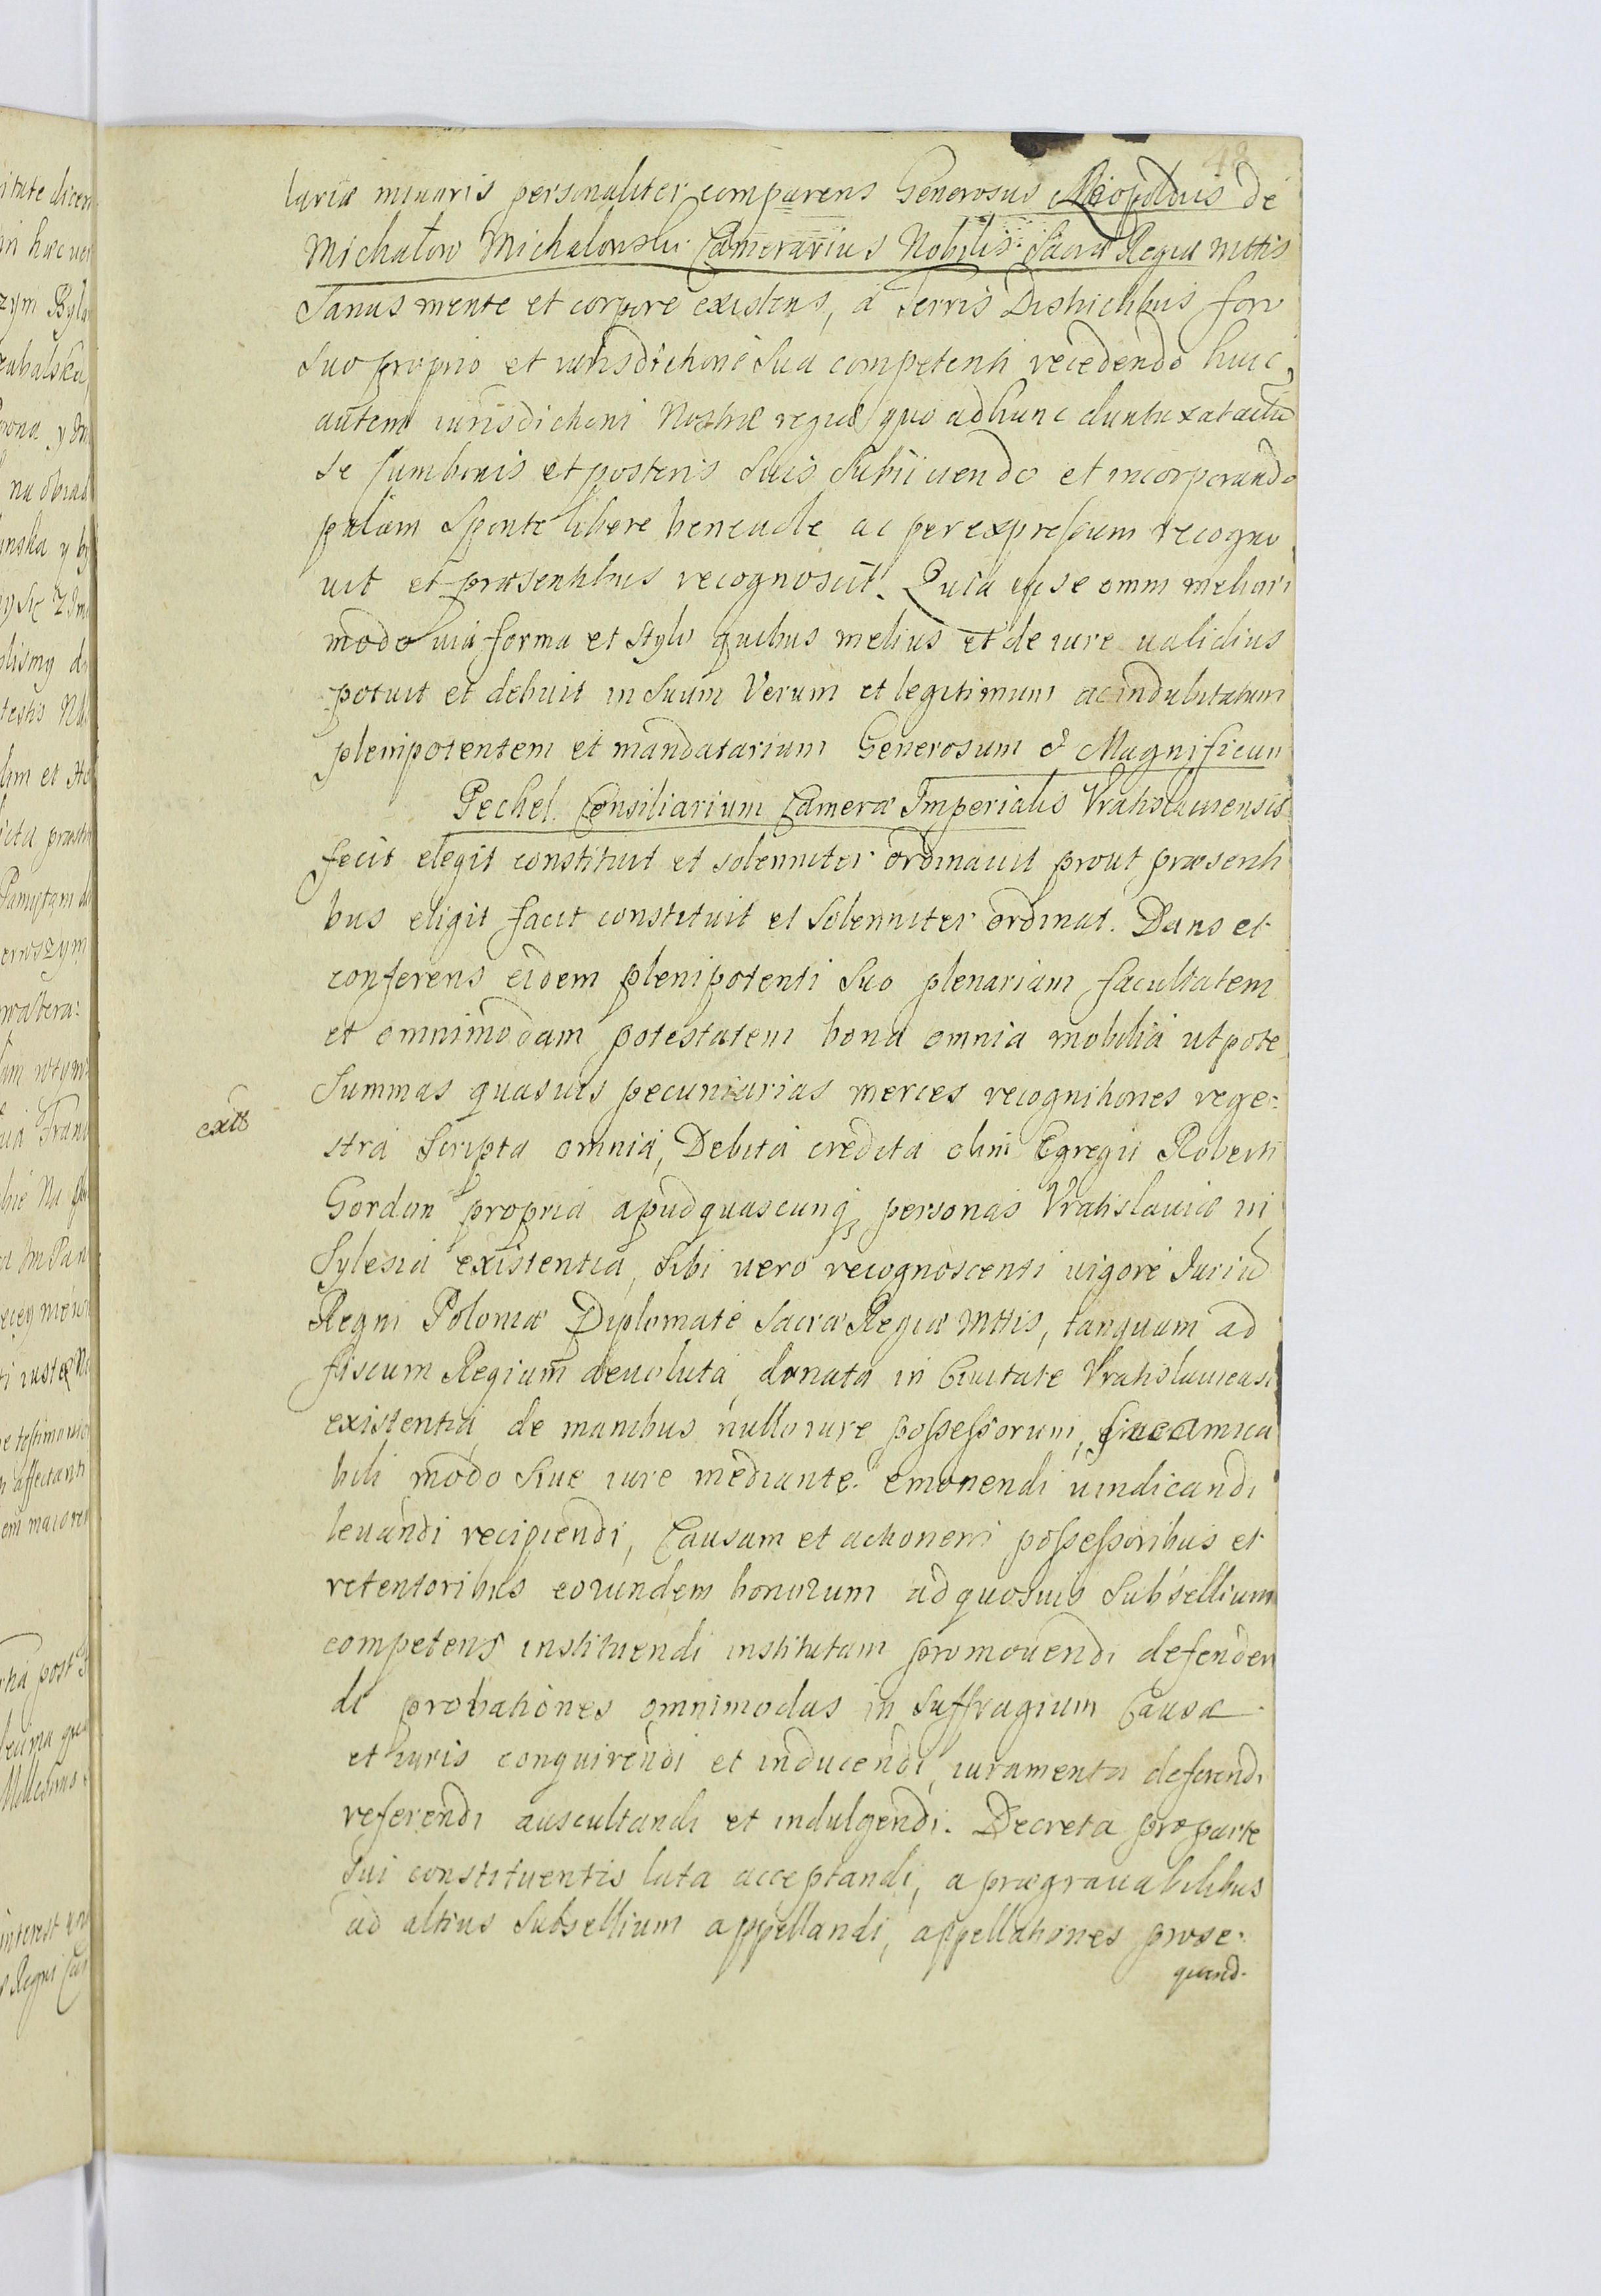 48
lariæ minoris personaliter comparens Generosus Leopoldus de
Michałow Michałowski Camerarius Nobilis Sacræ Regiæ Mttis
Sanus mente et corpore existens, á Terris Districtibus foro
suo proprio et iurisdictione sua competenti recedendo huic
autem iurisdictioni Nostræ regiæ quo ad hunc duntaxat actũ
se cum bonis et posteris suis subiiciendo et incorporando
palam sponte libere beneuole ac per expressum recogno
uit et præsentibus recognoscit. Quia ipse omni meliori
modo uia forma et stylo quibus melius et de iure ualidius
potuit et debuit in suum Verum et legitimum ac indubitatum
plenipotentem et mandatarium Generosum & Magnificum
Pechel Consiliarium Cameræ Imperialis Vratislauiensis
fecit elegit constituit et solenniter ordinauit prout præsenti
bus eligit facit constituit et solenniter ordinat. Dans et
conferens eidem plenipotenti suo plenariam facultatem
et omnimodam potestatem bona omnia mobilia utpote
Summas quasuis pecuniarias merces recognitiones rege:
stra scripta omnia, Debita credita olim Egregii Roberti
Gordon propria apud quascunq3 personas Vratislauiæ in
Sylesia existentia, sibi uero recognoscenti uigore Juriũ
Regni Poloniæ Diplomate Sacræ Regiæ Mttis, tanquam ad
fiscum Regium deuoluta, donata in Ciuitate Vratislauiensi
existentia, de manibus nullo iure possessorum, siue amica
bili modo siue iure mediante emonendi uindicandi
leuandi recipiendi, Causam et actionem possessoribus et
retentoribus eorundem bonorum ad quosuis subsellium
competens instituendi institutam promouendi defenden
di probationes omnimodas in suffragium Causæ
et iuris conquirendi et inducendi, iuramenta deferendi
referendi auscultandi et indulgendi. Decreta pro parte
sui constituentis lata acceptandi, a prægrauabilibus
ad altius subsellium appellandi, appellationes prose:
quend.